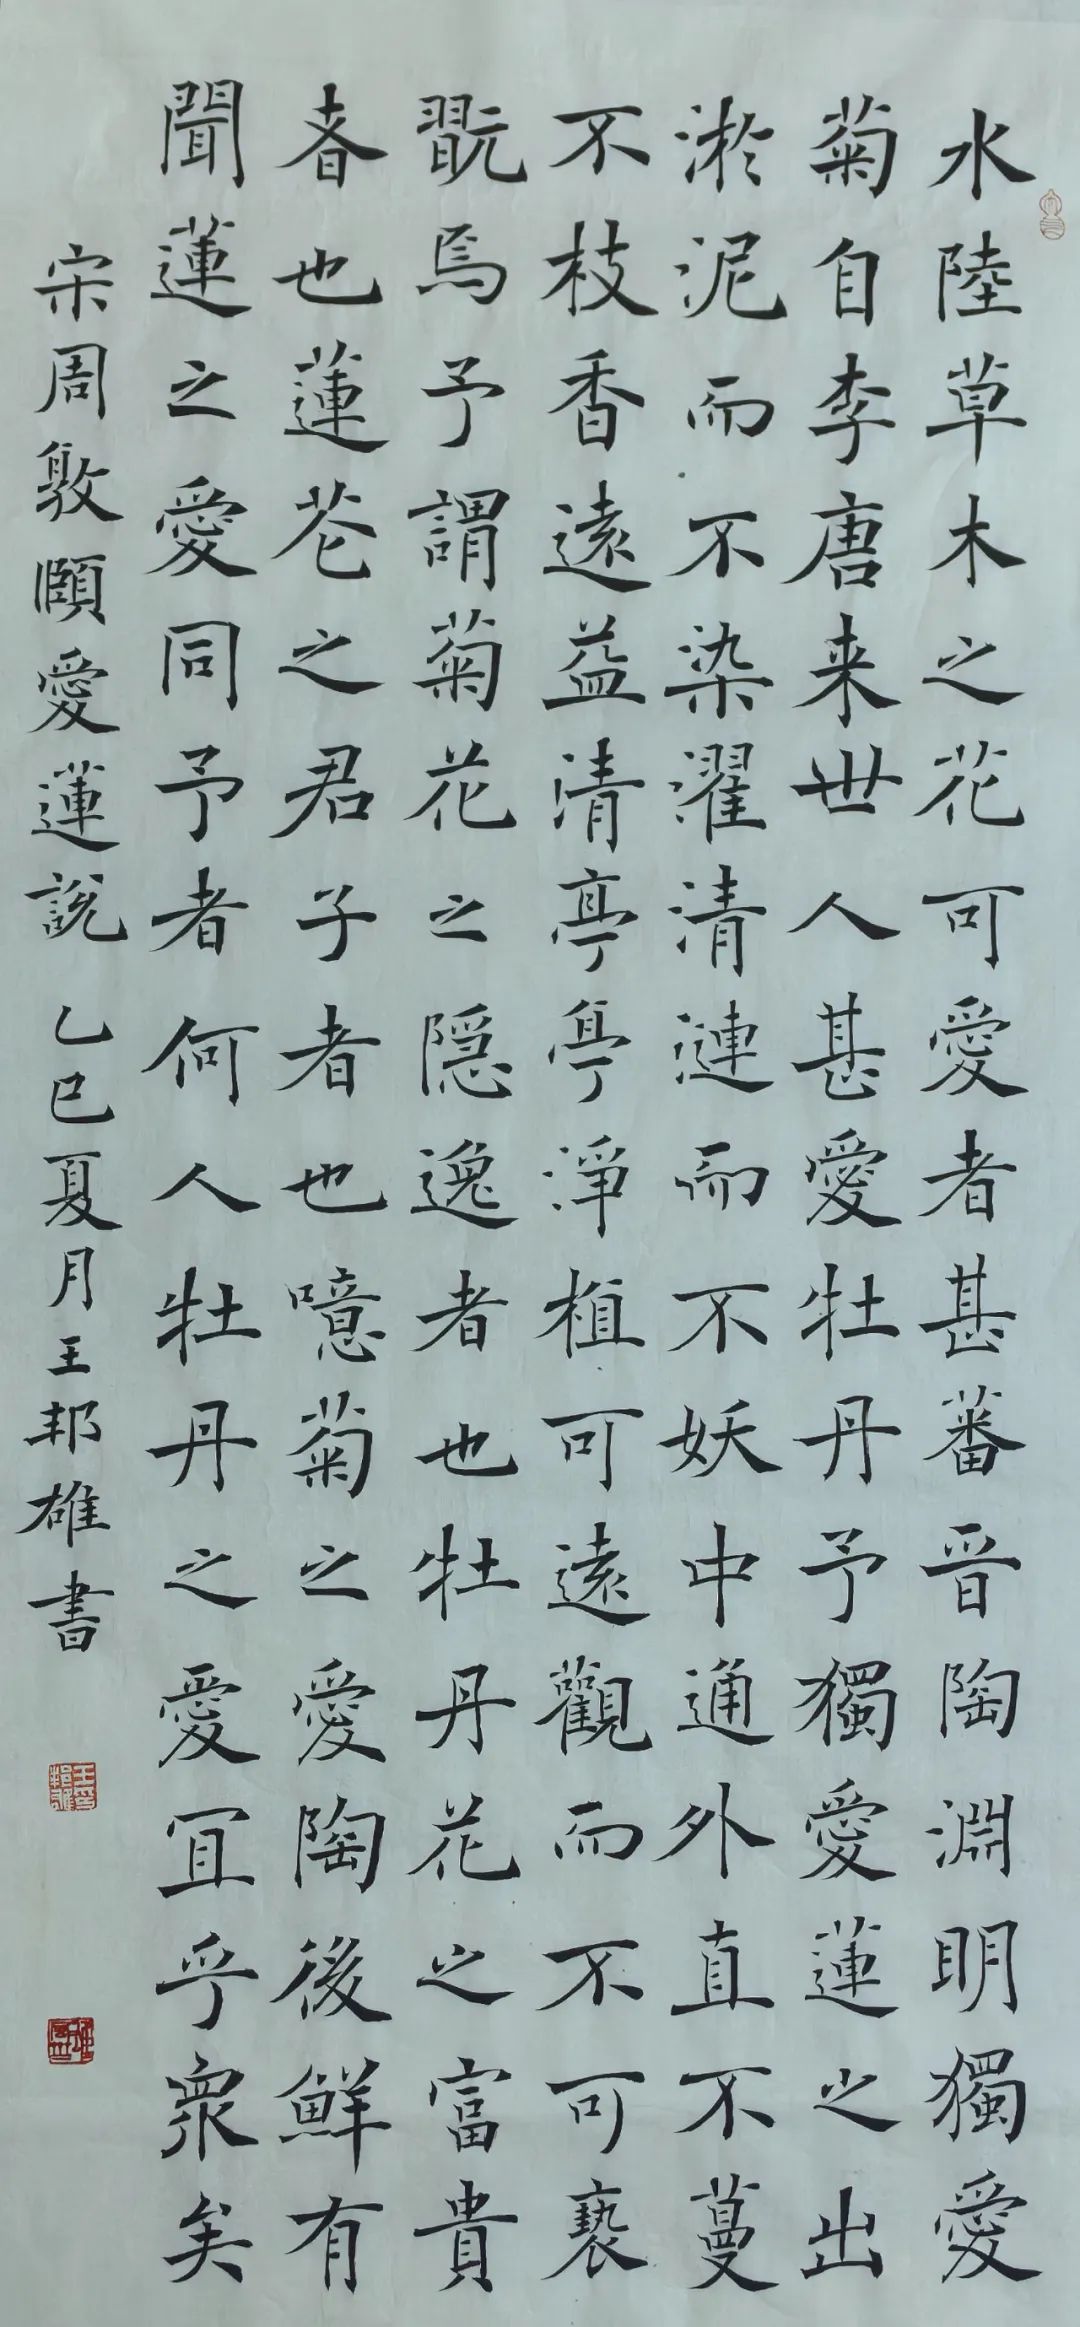 水陸草木之花可愛者甚蕃晋陶淵明獨愛
菊自李唐来世人甚愛牡丹予獨愛蓮之出
淤泥而不染濯清漣而不妖中通外直不蔓
不枝香遠益清亭亭淨植可遠觀而不可褻
翫焉予謂菊花之隱逸者也牡丹花之富貴
者也蓮花之君子者也噫菊之愛陶後鮮有
聞蓮之愛同予者何人牡丹之愛宜乎衆矣
宋周敦頤愛蓮説 乙巳夏月王邦雄書
王邦雄印